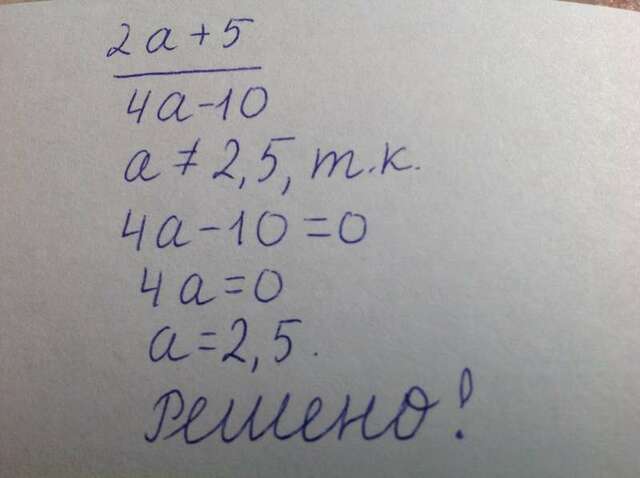 2a+5
4a-10
a ≠ 2,5, т.к.
4a-10=0
4a=0
a=2,5.
Решено!